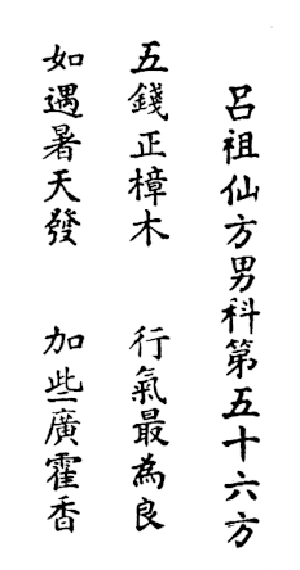 呂祖仙方男科第五十六方
五錢正樟木 行氣最為良
如遇暑天發 加些廣霍香